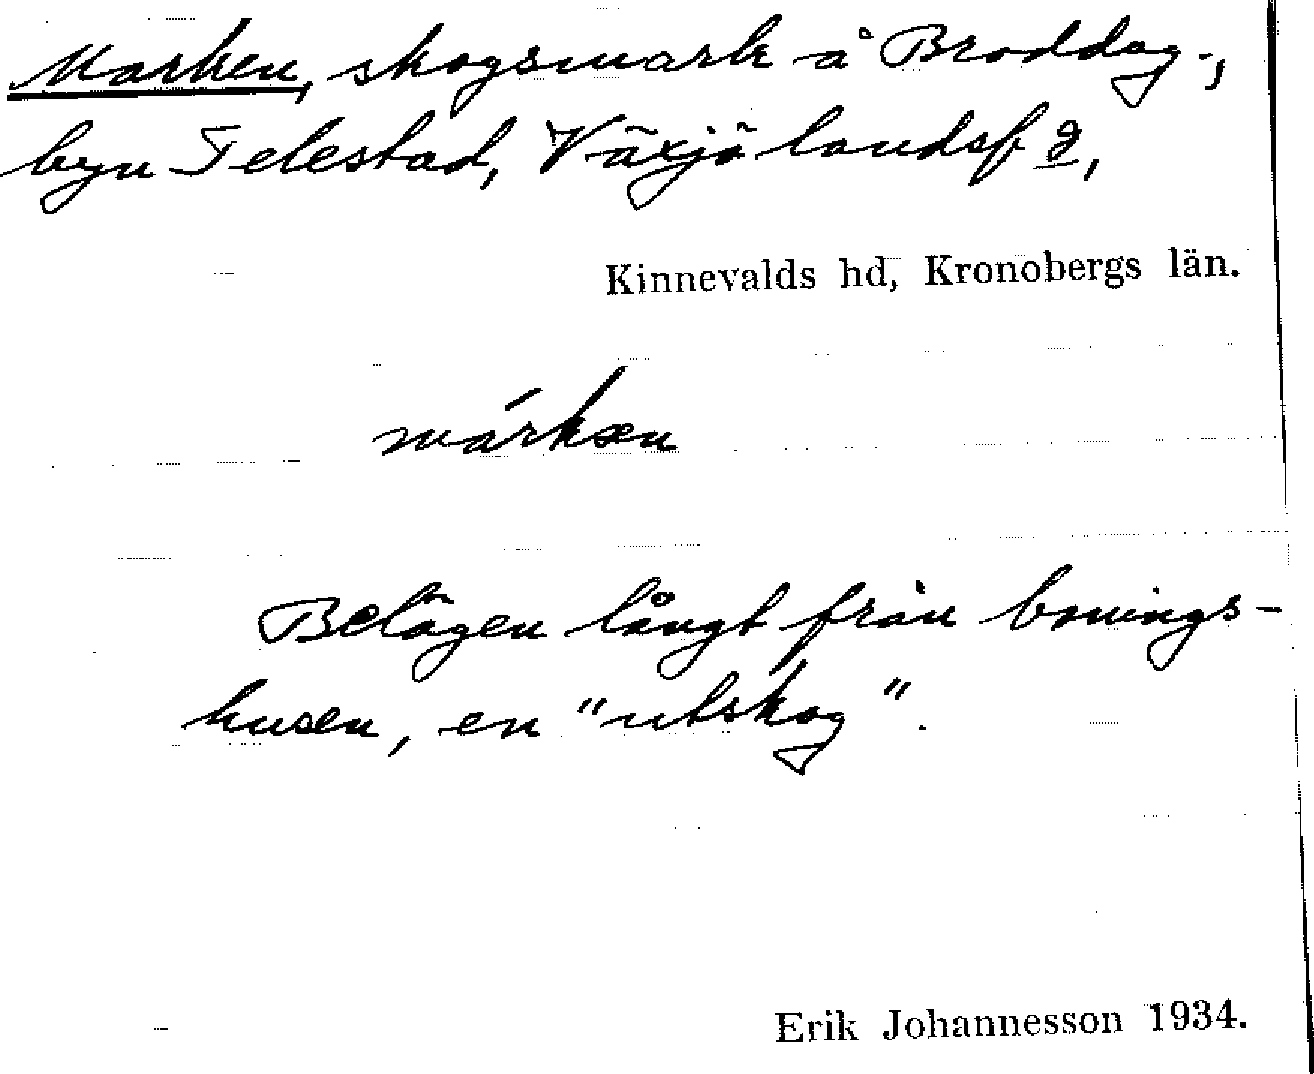 Marken, skogsmark å Broddag.,
byn Telestad, Växjö landsf g,
Kinnevalds hd, Kronobergs län.
márkæn
Belägen långt från bonings-
husen, en "utskog".
Erik Johannesson 1934.